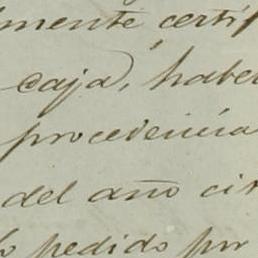 mente certif
caja, haber
procedencia
del año cir
lo pedido por